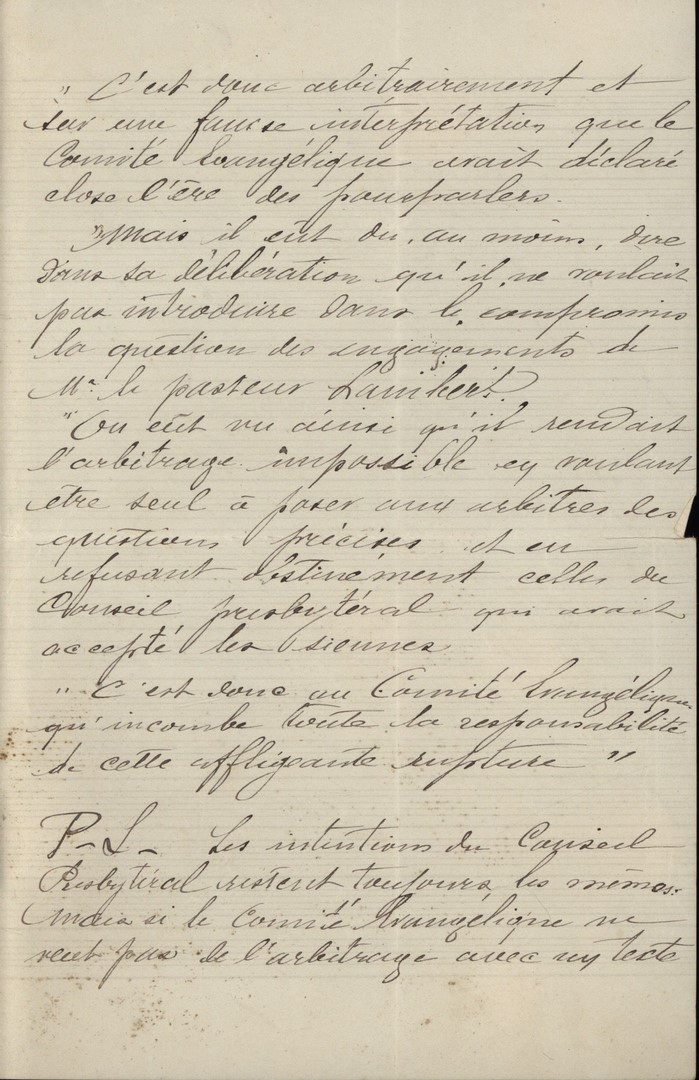 " C'est donc arbitrairement et
sur une fausse interprétation que le
Comité Evangélique avait déclaré
close l'ère des pourparlers.
" Mais il eût du, au moins, dire
dans sa délibération qu'il ne voulait
pas introduire dans le compromis
la question des engagements de
Mr le pasteur Lambert.
" On eût vu ainsi qu'il rendait
l'arbitrage impossible en voulant
être seul à poser aux arbitres des
questions précises et en
refusant obstinément celles du
Conseil presbytéral qui avait
accepté les siennes
" C'est donc au Comité Evangélique
qu'incombe toute la responsabilité
de cette affligeante rupture "
P-S- Les intentions du Conseil
Presbytéral restent toujours les mêmes.
Mais si le Comité Evangélique ne
veut pas de l'arbitrage avec un texte